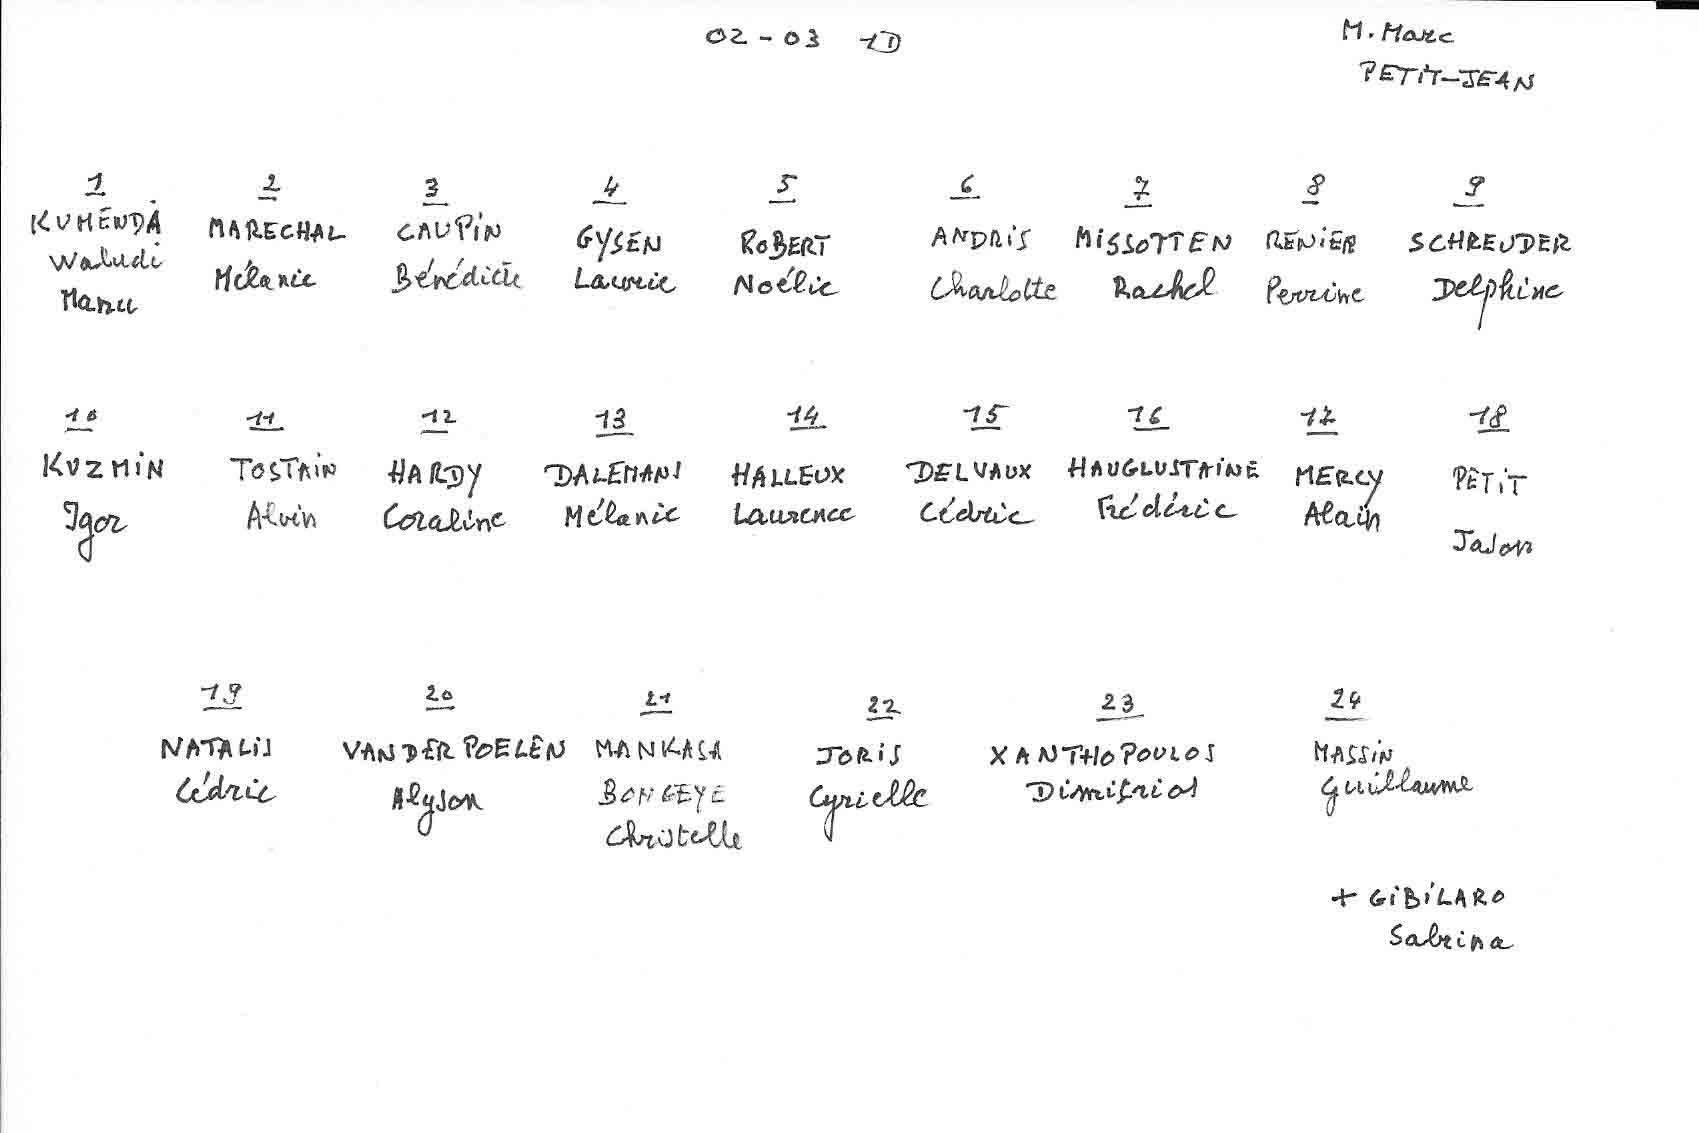 02-03 1D
M. Marc
PETIT-JEAN
1 2 3 4 5 6 7 8 9
KUMENDA MARECHAL CAUPIN GYSEN ROBERT ANDRIS MISSOTTEN RENIER SCHREUDER
Waludi Mélanie Bénédicte Laurie Noélie Charlotte Rachel Perrine Delphine
Manu
10 11 12 13 14 15 16 17 18
KUZMIN TOSTAIN HARDY DALEMANS HALLEUX DELVAUX HAUGLUSTAINE MERCY PETIT
Igor Alvin Coraline Mélanie Laurence Cédric Frédéric Alain Jason
19 20 21 22 23 24
NATALIS VANDERPOELEN MANKASA JORIS XANTHOPOULOS MASSIN
Cédric Alyson BONGEYE Cyrielle Dimitrios Guillaume
Christelle
+ GIBILARO
Sabrina